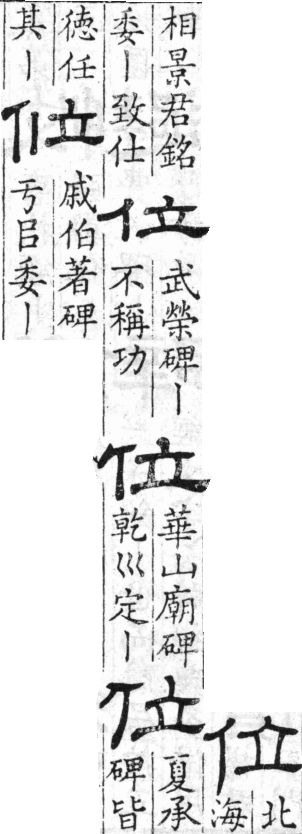 位
北
海
相景君銘
委丨致仕
位
武榮碑丨
不稱功
位
華山廟碑
乾巛定丨
位
夏承
碑皆
徳任
其丨
位
戚伯著碑
亏㠯委丨